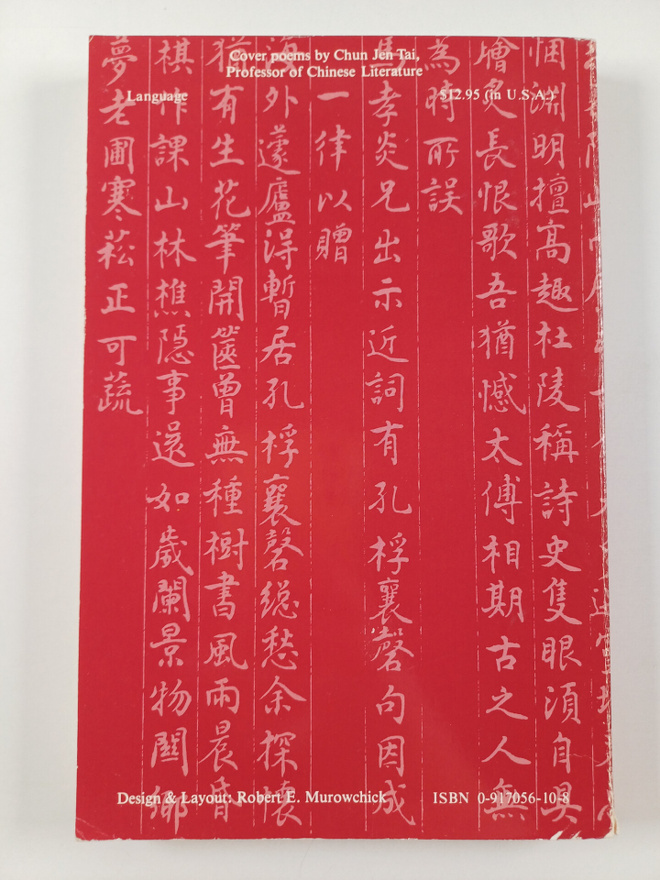 Cover poems by Chun Jen Tai,
Professor of Chinese Literature
Language
$12.95 (in U.S.A.)
淵明擅高趣杜陵稱詩史隻眼須自具
膾炙長恨歌吾猶憾太傅相期古之人無
為時所誤
馬孝炎兄出示近詞有孔桴襄磬句因成
一律以贈
海外蘧廬得暫居孔桴襄磬總愁余探懷
猶有生花筆開篋曾無種樹書風雨晨昏
棋作課山林樵隱事還如歲闌景物關鄉
夢老圃寒菘正可蔬
Design & Layout: Robert E. Murowchick
ISBN 0-917056-10-8